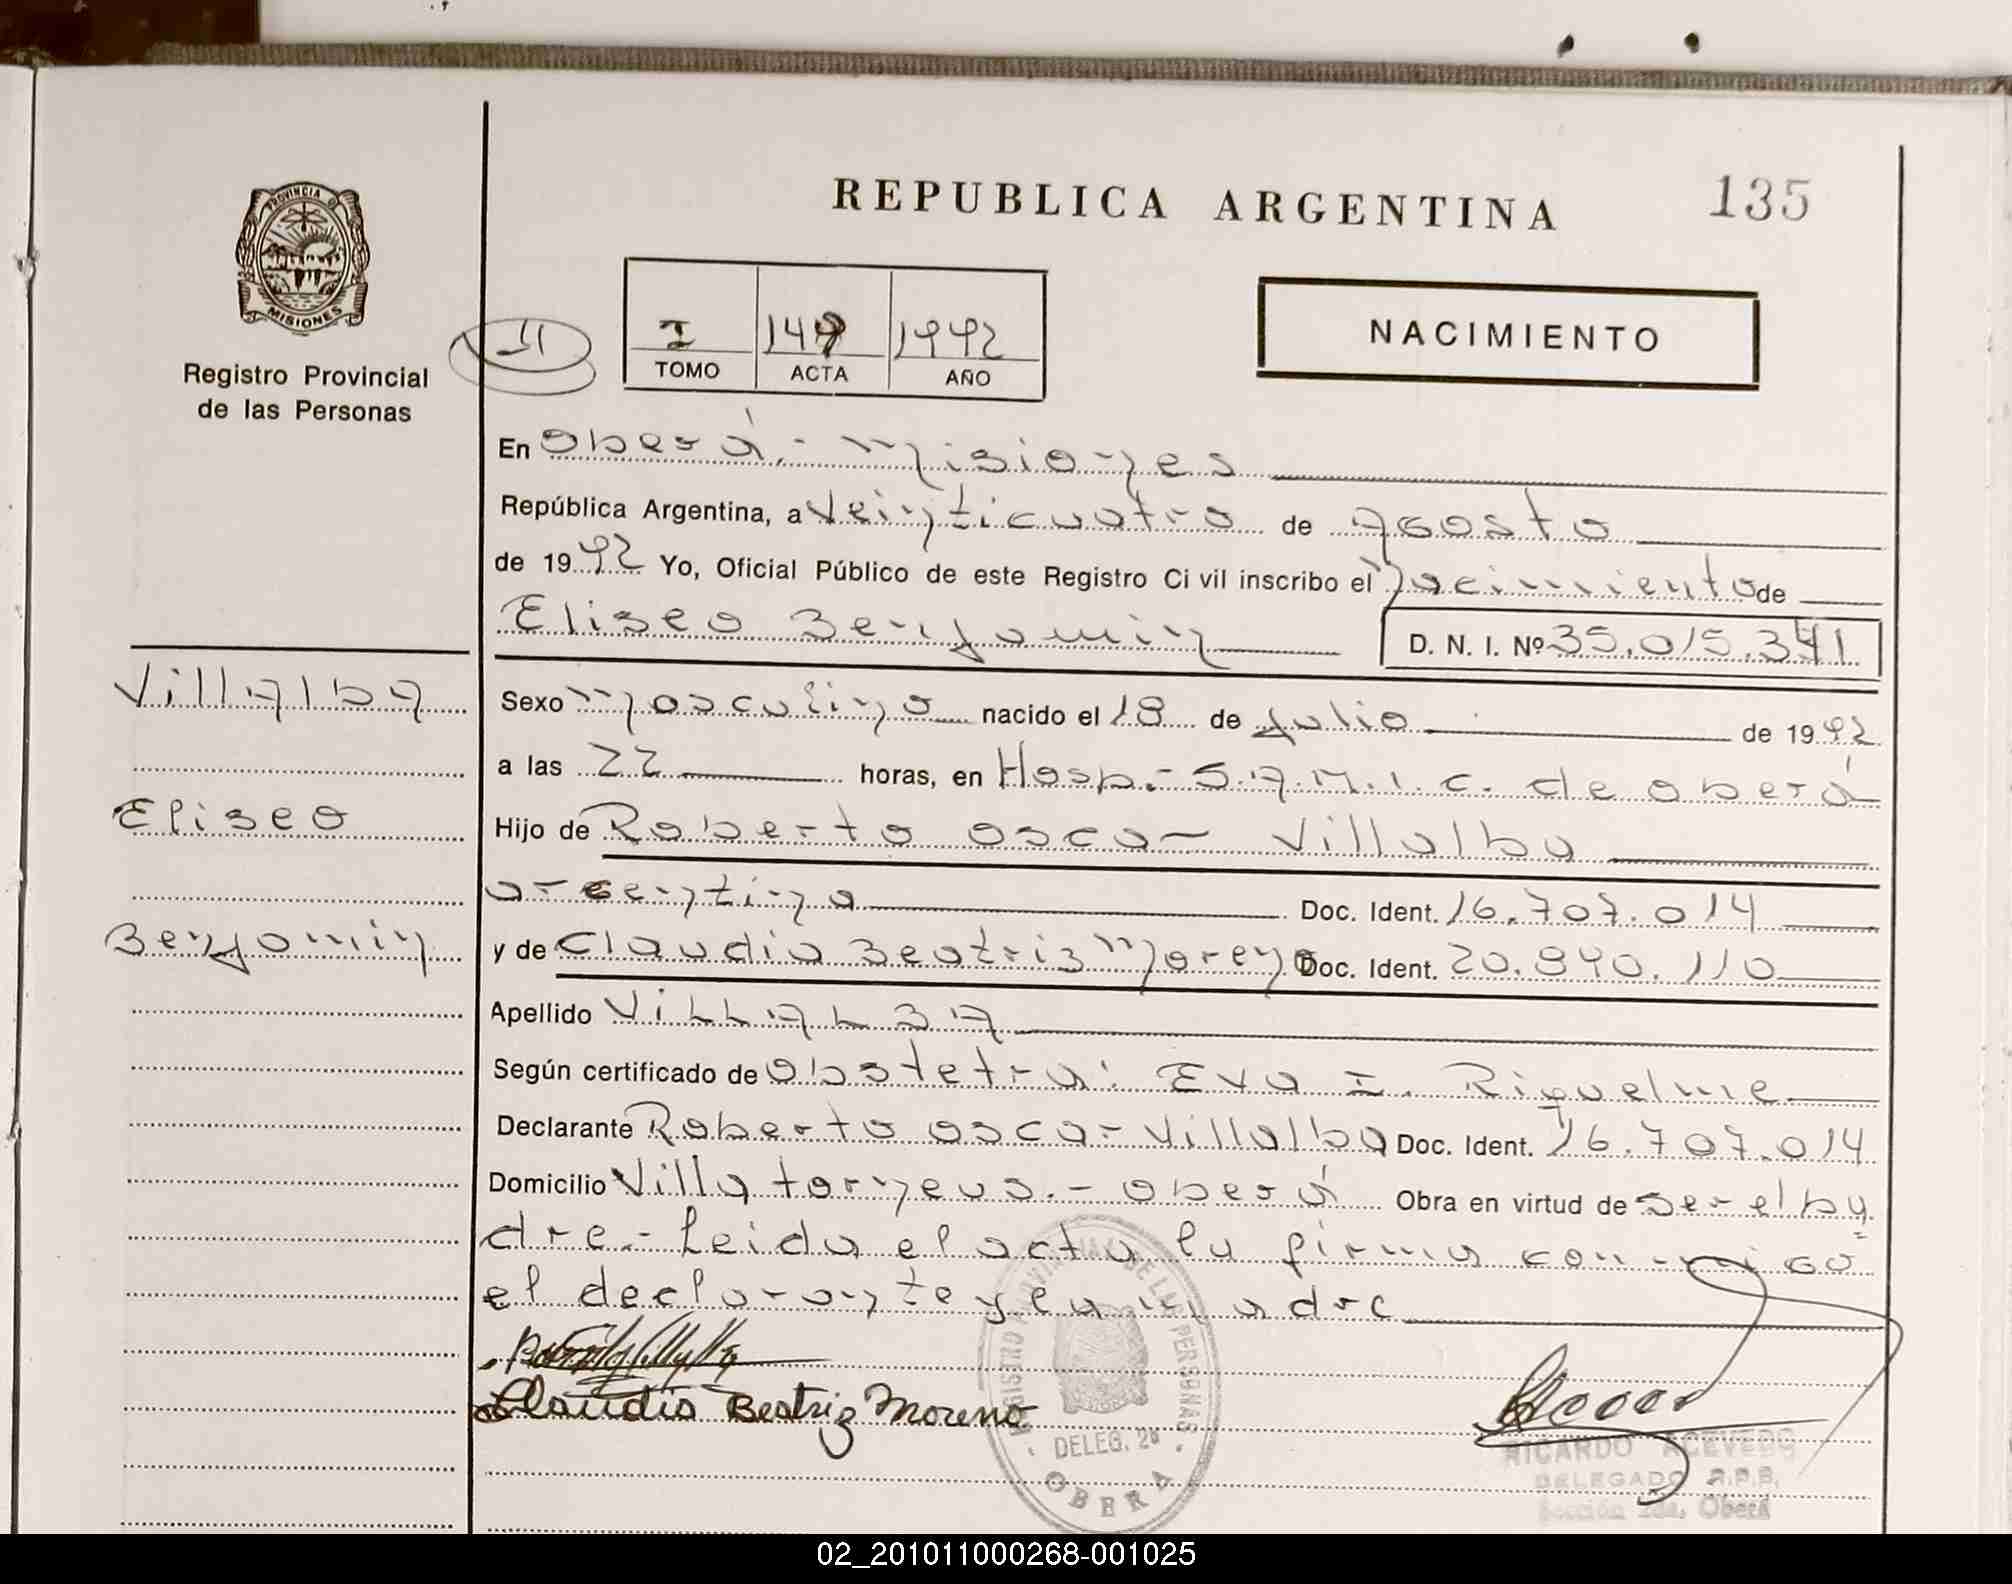 REPUBLICA ARGENTINA
135
PROVINCIA D
MISIONES
Registro Provincial
de las Personas
I
1992
TOMO
ACTA
AÑO
NACIMIENTO
En Oberá.- Misiones
República Argentina, a Veinticuatro de Agosto
de 1992 Yo, Oficial Público de este Registro Ci vil inscribo el Nacimiento de
Eliseo Benjamin
D. N. I. Nº 35.015.341
Villalba
Eliseo
Benjamin
Sexo Masculino nacido el 18 de Julio de 1992
a las 22 horas, en Hosp.- S.A.M.I.C. de Oberá
Hijo de Roberto Oscar Villalba
argentino Doc. Ident. 16.707.014
y de Claudia Beatriz Moreno Doc. Ident. 20.840.110
Apellido VILLALBA
Según certificado de Obstetra: Eva I. Riquelme
Declarante Roberto Oscar Villalba Doc. Ident. 16.707.014
Domicilio Villa torneus.- Oberá Obra en virtud de ser el pa
dre.- Leida el acta la firma conmigo
el declarante y la madre
Claudia Beatriz Moreno
REGISTRO PROVINCIAL DE LAS PERSONAS
DELEG. 2ª
OBERA
RICARDO ACEVEDO
DELEGADO R.P.P.
Sección 2da. Oberá
02_201011000268-001025